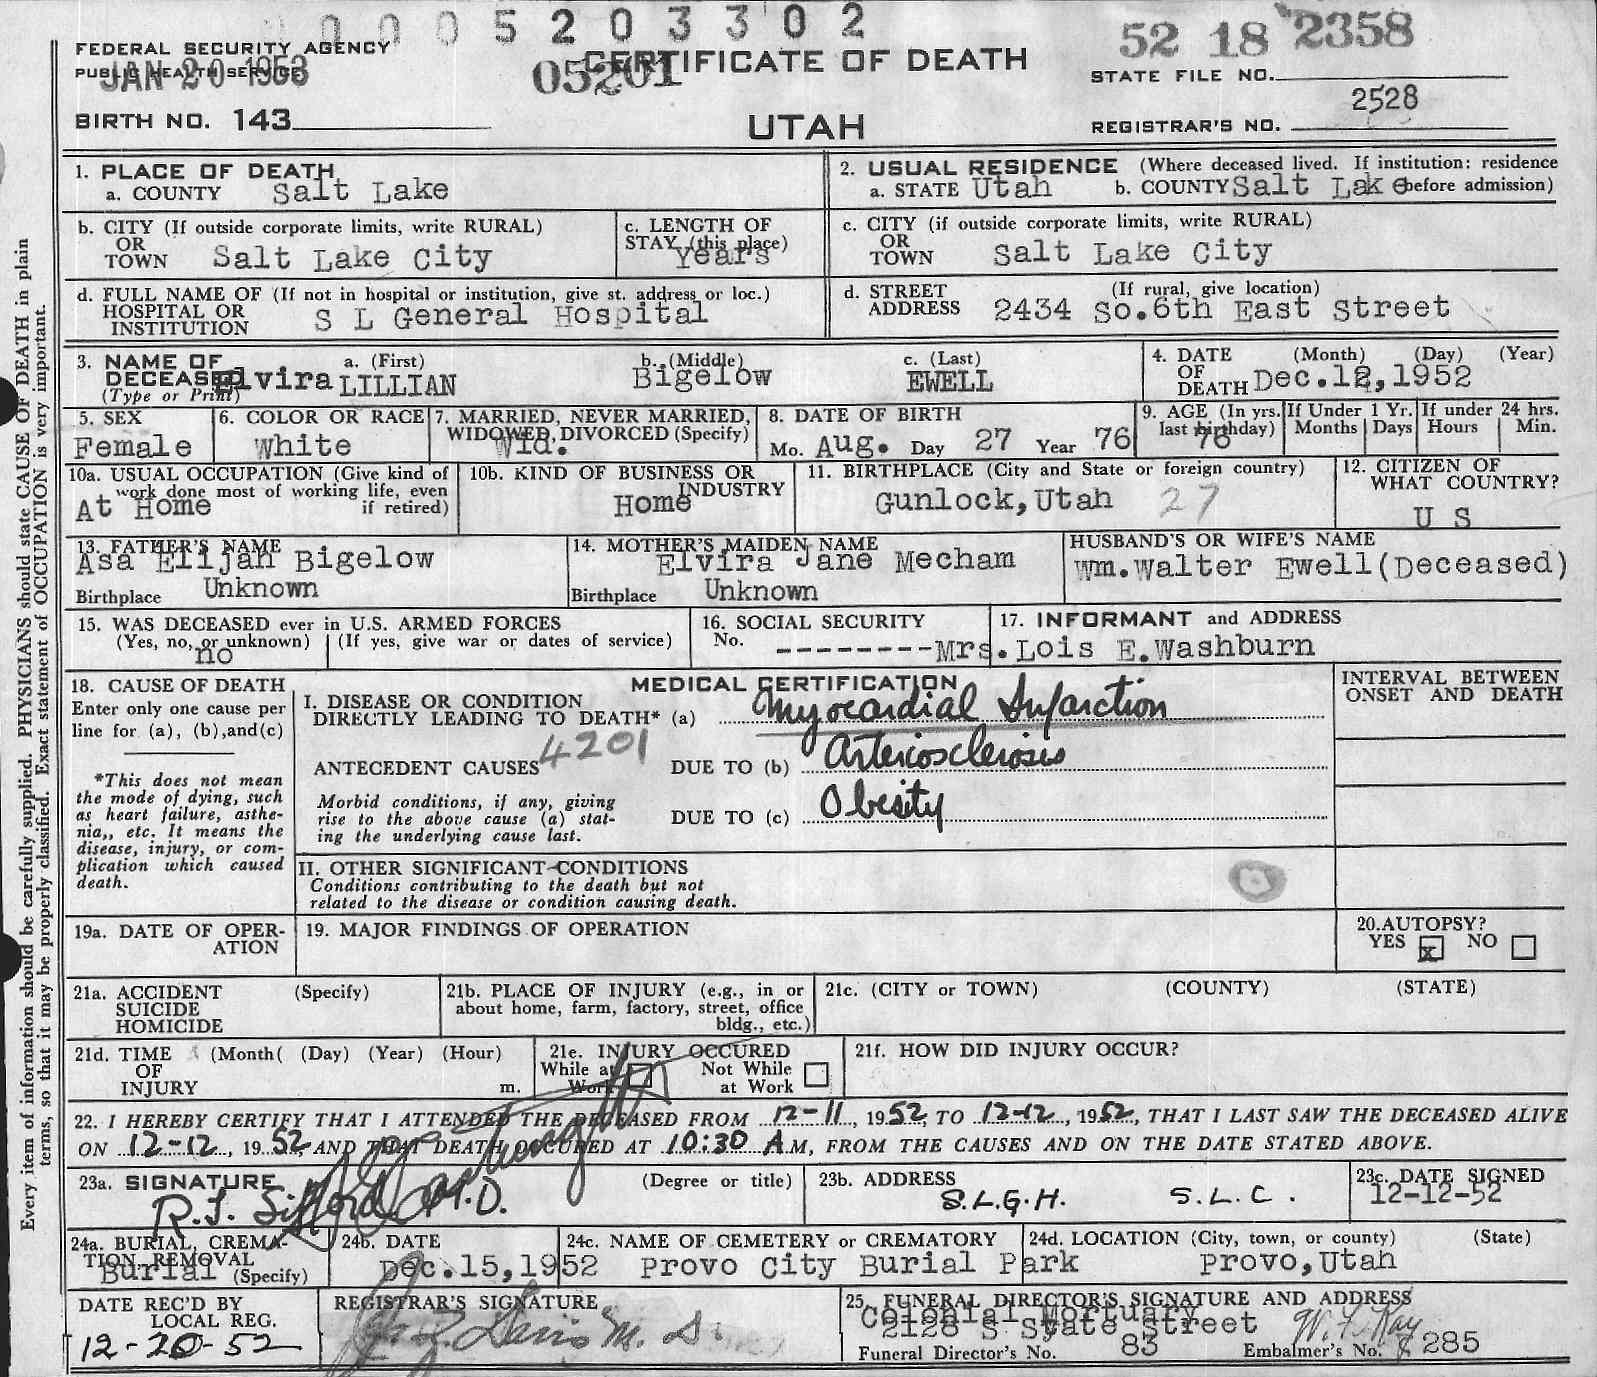 0 0 0 5 2 0 3 3 0 2
52 18 2358
FEDERAL SECURITY AGENCY
PUBLIC HEALTH SERVICE
JAN 20 1953
05201
CERTIFICATE OF DEATH
STATE FILE NO.
2528
BIRTH NO. 143
UTAH
REGISTRAR'S NO.
1. PLACE OF DEATH
a. COUNTY Salt Lake
2. USUAL RESIDENCE (Where deceased lived. If institution: residence
a. STATE Utah b. COUNTY Salt Lake before admission)
b. CITY (If outside corporate limits, write RURAL)
OR
TOWN Salt Lake City
c. LENGTH OF
STAY (this place)
Years
c. CITY (if outside corporate limits, write RURAL)
OR
TOWN Salt Lake City
d. FULL NAME OF (If not in hospital or institution, give st. address or loc.)
HOSPITAL OR
INSTITUTION S L General Hospital
d. STREET (If rural, give location)
ADDRESS 2434 So.6th East Street
3. NAME OF
DECEASED
(Type or Print)
a. (First)
Elvira LILLIAN
b. (Middle)
Bigelow
c. (Last)
EWELL
4. DATE (Month) (Day) (Year)
OF
DEATH Dec.12,1952
5. SEX
Female
6. COLOR OR RACE
White
7. MARRIED, NEVER MARRIED,
WIDOWED, DIVORCED (Specify)
Wid.
8. DATE OF BIRTH
Mo. Aug. Day 27 Year 76
9. AGE (In yrs.
last birthday)
76
If Under 1 Yr.
Months Days
If under 24 hrs.
Hours Min.
10a. USUAL OCCUPATION (Give kind of
work done most of working life, even
if retired)
At Home
10b. KIND OF BUSINESS OR
INDUSTRY
Home
11. BIRTHPLACE (City and State or foreign country)
Gunlock,Utah 27
12. CITIZEN OF
WHAT COUNTRY?
U S
13. FATHER'S NAME
Asa Elijah Bigelow
Birthplace Unknown
14. MOTHER'S MAIDEN NAME
Elvira Jane Mecham
Birthplace Unknown
HUSBAND'S OR WIFE'S NAME
Wm.Walter Ewell(Deceased)
15. WAS DECEASED ever in U.S. ARMED FORCES
(Yes, no, or unknown) (If yes, give war or dates of service)
no
16. SOCIAL SECURITY
No. --------
17. INFORMANT and ADDRESS
Mrs.Lois E.Washburn
18. CAUSE OF DEATH
Enter only one cause per
line for (a), (b),and(c)
*This does not mean
the mode of dying, such
as heart failure, asthe-
nia,, etc. It means the
disease, injury, or com-
plication which caused
death.
MEDICAL CERTIFICATION
I. DISEASE OR CONDITION
DIRECTLY LEADING TO DEATH* (a) Myocardial Infarction
4201
ANTECEDENT CAUSES DUE TO (b) Arteriosclerosis
Morbid conditions, if any, giving
rise to the above cause (a) stat-
ing the underlying cause last.
DUE TO (c) Obesity
II. OTHER SIGNIFICANT CONDITIONS
Conditions contributing to the death but not
related to the disease or condition causing death.
INTERVAL BETWEEN
ONSET AND DEATH
19a. DATE OF OPER-
ATION
19. MAJOR FINDINGS OF OPERATION
20.AUTOPSY?
YES x NO
21a. ACCIDENT (Specify)
SUICIDE
HOMICIDE
21b. PLACE OF INJURY (e.g., in or
about home, farm, factory, street, office
bldg., etc.)
21c. (CITY or TOWN) (COUNTY) (STATE)
21d. TIME (Month( (Day) (Year) (Hour)
OF
INJURY m.
21e. INJURY OCCURED
While at Work
Not While at Work
21f. HOW DID INJURY OCCUR?
22. I HEREBY CERTIFY THAT I ATTENDED THE DECEASED FROM 12-11, 1952, TO 12-12, 1952, THAT I LAST SAW THE DECEASED ALIVE
ON 12-12, 1952, AND THAT DEATH OCCURED AT 10:30 A M, FROM THE CAUSES AND ON THE DATE STATED ABOVE.
23a. SIGNATURE (Degree or title)
M.D.
23b. ADDRESS
S.L.G.H. S.L.C.
23c. DATE SIGNED
12-12-52
24a. BURIAL, CREMA-
TION, REMOVAL
Burial (Specify)
24b. DATE
Dec.15,1952
24c. NAME OF CEMETERY or CREMATORY
Provo City Burial Park
24d. LOCATION (City, town, or county) (State)
Provo,Utah
DATE REC'D BY
LOCAL REG.
12-20-52
REGISTRAR'S SIGNATURE
25. FUNERAL DIRECTOR'S SIGNATURE AND ADDRESS
Colonial Mortuary
2128 S State Street
Funeral Director's No. 83 Embalmer's No. 285
Every item of information should be carefully supplied. PHYSICIANS should state CAUSE OF DEATH in plain
terms, so that it may be properly classified. Exact statement of OCCUPATION is very important.